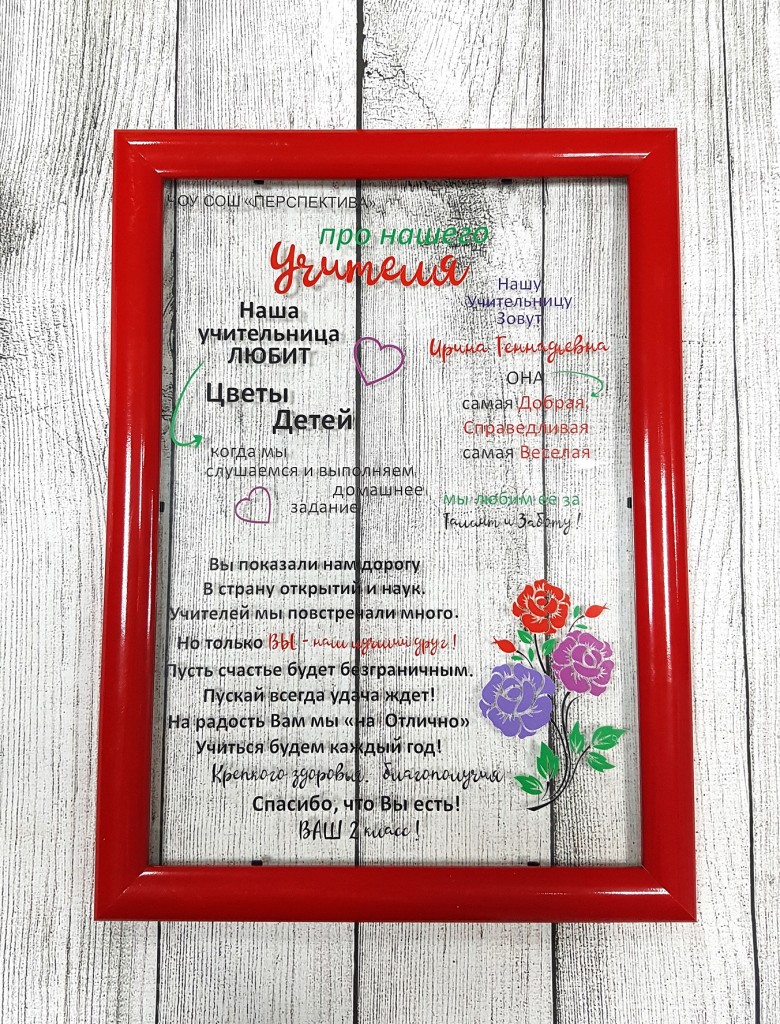 ЧОУ СОШ «ПЕРСПЕКТИВА»
про нашего
Учителя
Наша
учительница
ЛЮБИТ
Цветы
Детей
когда мы
слушаемся и выполняем
домашнее
задание
Нашу
Учительницу
Зовут
Ирина Геннадьевна
ОНА
самая Добрая,
Справедливая
самая Веселая
мы любим ее за
Талант и Заботу!
Вы показали нам дорогу
В страну открытий и наук.
Учителей мы повстречали много.
Но только ВЫ - наш лучший друг!
Пусть счастье будет безграничным.
Пускай всегда удача ждет!
На радость Вам мы «на Отлично»
Учиться будем каждый год!
Крепкого здоровья, благополучия
Спасибо, что Вы есть!
ВАШ 2 класс!